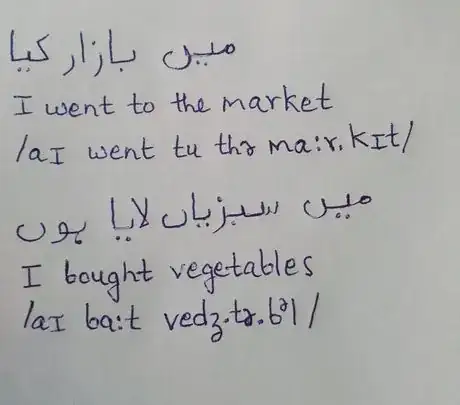 میں بازار کیا
I went to the market
/aɪ went tu thə ma:r.kɪt/
میں سبزیاں لایا ہوں
I bought vegetables
/aɪ ba:t vedʒ.tə.bᵊl/